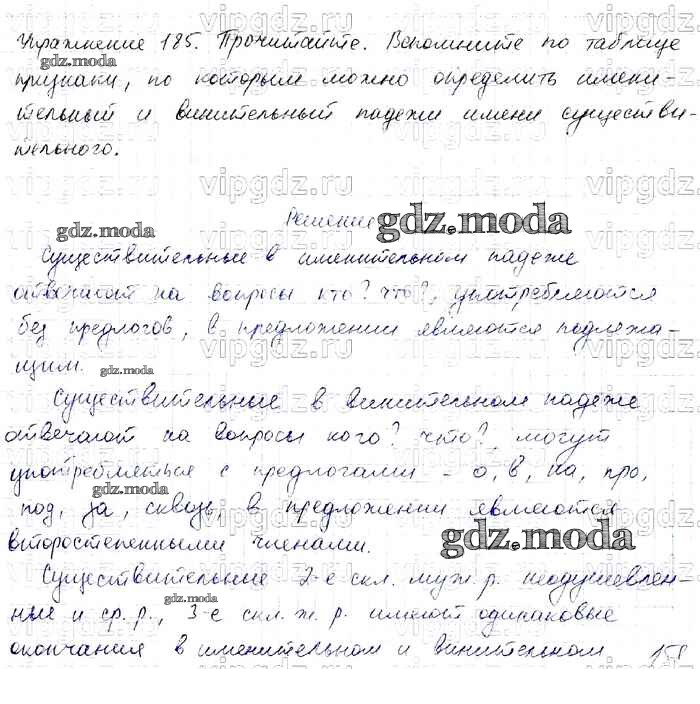 Упражнение 185. Прочитайте. Вспомните по таблице
признаки, по которым можно определить имени-
тельный и винительный падежи имени существи-
тельного.
Решение
gdz.moda
Существительные в именительном падеже
отвечают на вопросы кто? что?, употребляются
без предлогов, в предложении являются подлежа-
щим.
Существительные в винительном падеже
отвечают на вопросы кого? что?, могут
употребляться с предлогами – о, в, на, про,
под, за, сквозь, в предложении являются
второстепенными членами.
gdz.moda
Существительные 2-е скл. муж. р. неодушевлен-
ные и ср. р., 3-е скл. ж. р. имеют одинаковые
окончания в именительном и винительном